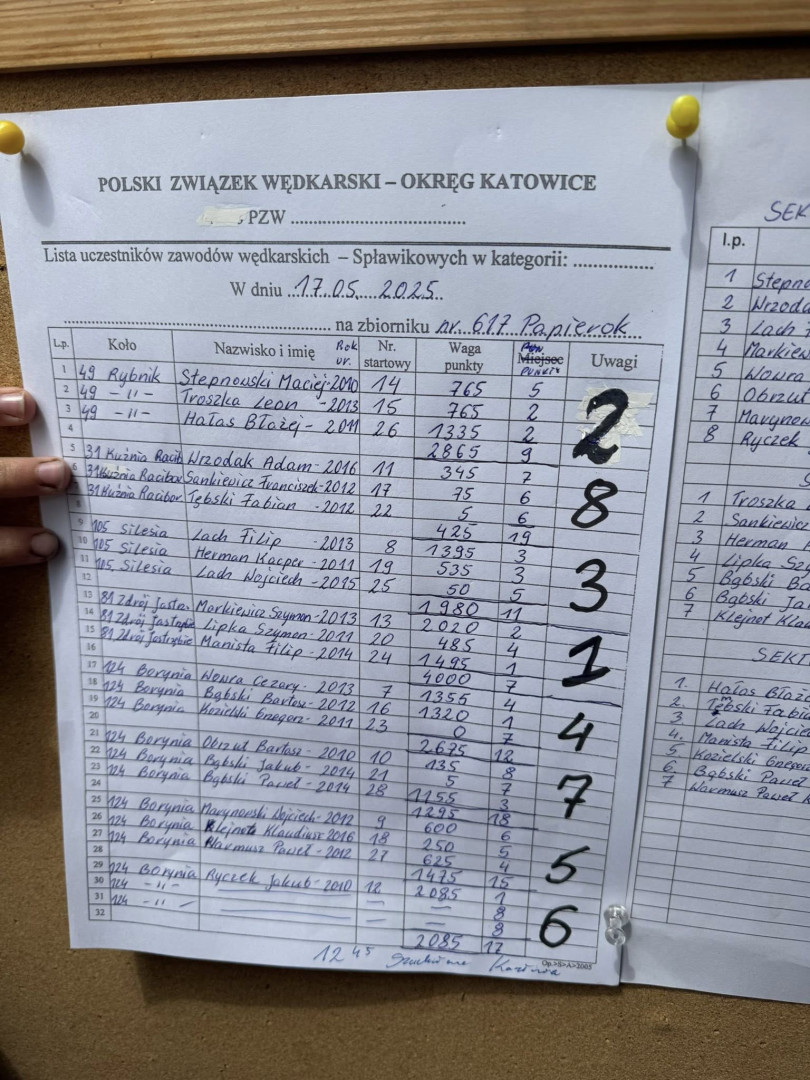 POLSKI ZWIĄZEK WĘDKARSKI – OKRĘG KATOWICE
PZW ...........................................
Lista uczestników zawodów wędkarskich – Spławikowych w kategorii: ................
W dniu ...17.05....2025..
............................................................ na zbiorniku nr. 617 Papierok...
L.p. Koło Nazwisko i imię Rok ur. Nr. startowy Waga punkty Miejsc PUNKTY Uwagi
1 49 Rybnik Stepnowski Maciej-2010 14 765 5
2 49 -11- Troszka Leon -2013 15 765 2
3 49 -11- Hałas Błażej - 2011 26 1335 2
4 2865 9 2
5 31 Kuźnia Racib Wrzodak Adam-2016 11 345 7
6 31 Kuźnia Racibor Sankiewicz Franciszek-2012 17 75 6
31 Kuźnia Racibor Tębski Fabian -2012 22 5 6
8 425 19 8
9 105 Silesia Lach Filip - 2013 8 1395 3
10 105 Silesia Herman Kacper - 2011 19 535 3
11 105 Silesia Lach Wojciech - 2015 25 50 5
12 1980 11 3
13 81 Zdrój Jastrz. Markiewicz Szymon-2013 13 2020 2
14 81 Zdrój Jastrzębie Lipka Szymon - 2011 20 485 4
15 81 Zdrój Jastrzębie Manista Filip - 2014 24 1495 1
16 4000 7 1
17 124 Borynia Wowra Cezary - 2013 7 1355 4
18 124 Borynia Bąbski Bartosz - 2012 16 1320 1
19 124 Borynia Kozielski Grzegorz - 2011 23 0 7
20 2675 12 4
21 124 Borynia Obrzut Bartosz - 2010 10 135 8
22 124 Borynia Bąbski Jakub - 2014 21 5 7
23 124 Borynia Bąbski Paweł - 2014 28 1155 3
24 1295 18 7
25 124 Borynia Marynowski Wojciech-2012 9 600 6
26 124 Borynia Klejnot Klaudiusz 2016 18 250 5
27 124 Borynia Warmusz Paweł - 2012 27 625 4
28 1475 15 5
29 124 Borynia Ryczek Jakub - 2010 12 2085 1
30 124 -11- — — 8
31 124 -11- — — 8
32 2085 17 6
12 45
Op.>S>A>2005
SEK
l.p.
1 Stepno
2 Wrzoda
3 Lach F
4 Markiew
5 Wowra
6 Obrzut
7 Marynow
8 Ryczek
S
1 Troszka
2 Sankiewic
3 Herman
4 Lipka Szy
5 Bąbski Ba
6 Bąbski Ja
7 Klejnot Klau
SEKT
1. Hałas Błaże
2. Tębski Fabi
3 Lach Wojcie
4. Manista Filip
5 Kozielski Grzegor
6 Bąbski Paweł
7 Warmusz Paweł